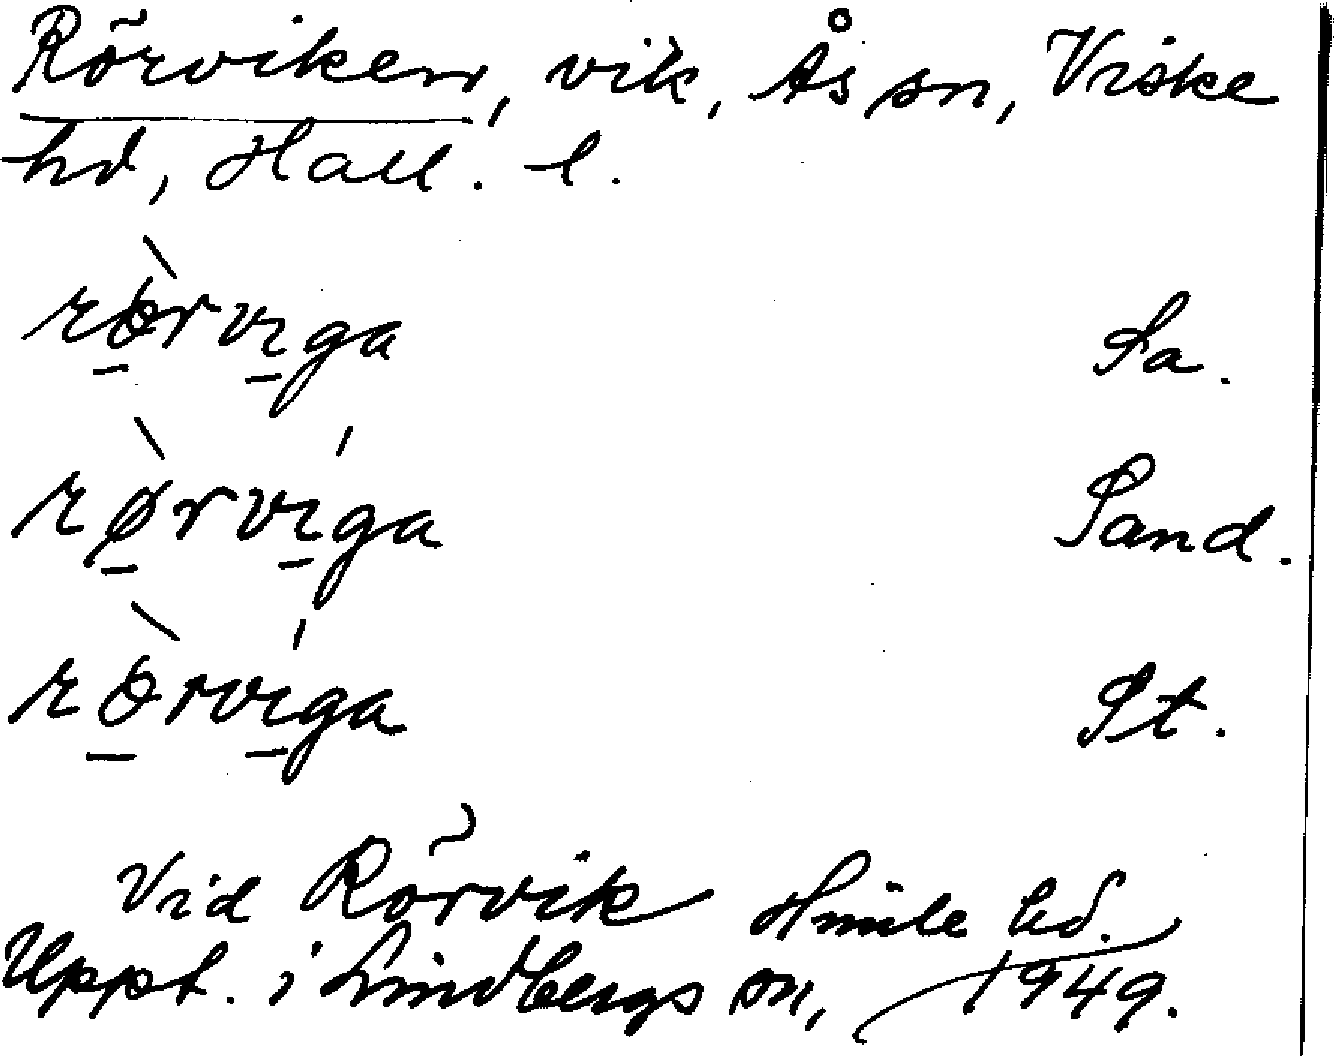 Rörviken, vik, Ås sn, Viske
hd, Hall. l.
rö̀rviga Sa.
rø̀rvíga Sand.
rö̀rvíga St.
Vid Rörvik Himle hd.
Uppt. i Lindbergs sn, 1949.